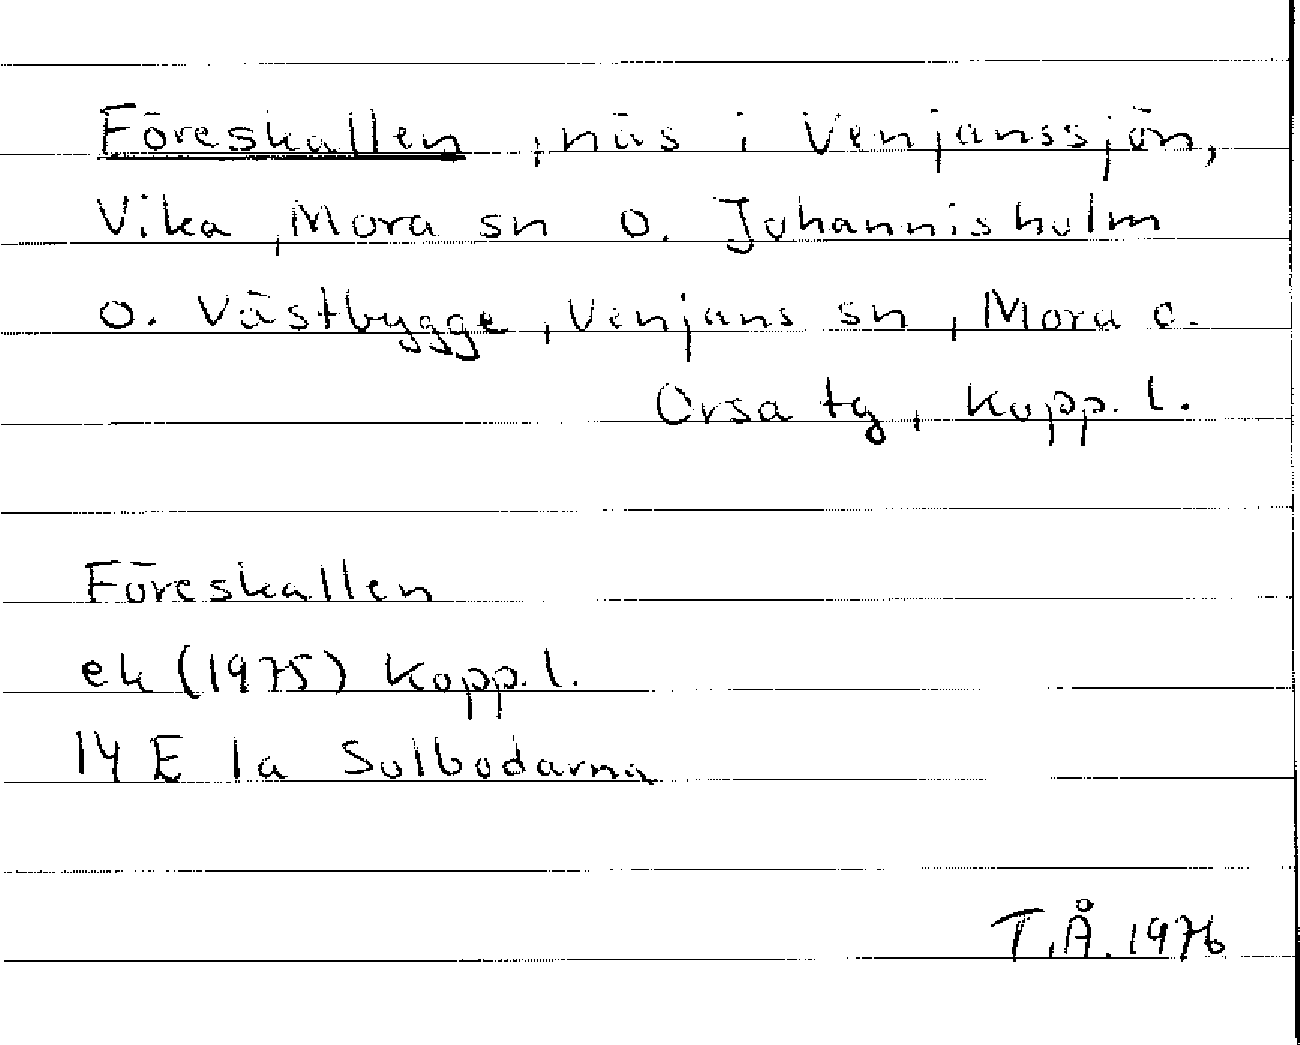 Föreskallen, näs i Venjanssjön,
Vika, Mora sn o. Johannisholm
o. Västbygge, Venjans sn, Mora o.
Orsa tg, Kopp. l.
Föreskallen
ek (1975) Kopp. l.
14 E 1a Solbodarna
T.Å. 1976